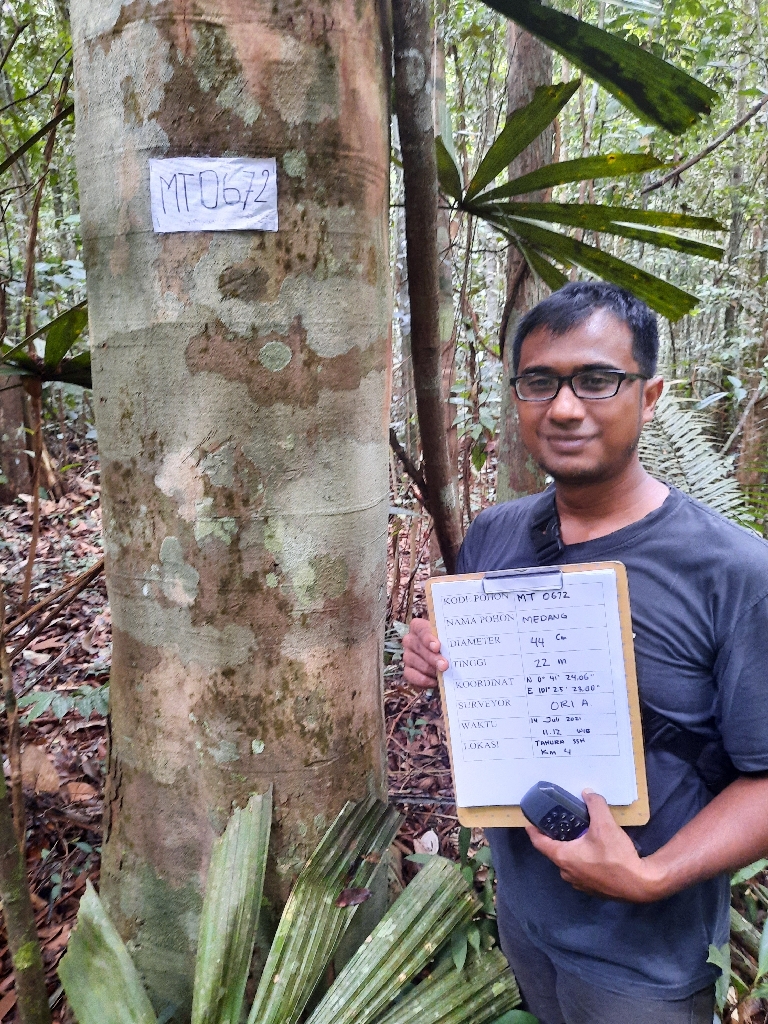 MT0672
KODE POHON MT 0672
NAMA POHON MEDANG
DIAMETER 44 Cm
TINGGI 22 m
KOORDINAT N 0° 41' 24.06"
E 101° 25' 23.06"
SURVEYOR ORI A
WAKTU 14 Juli 2021
11.12 WIB
LOKASI TAHURA SSH
KM 4